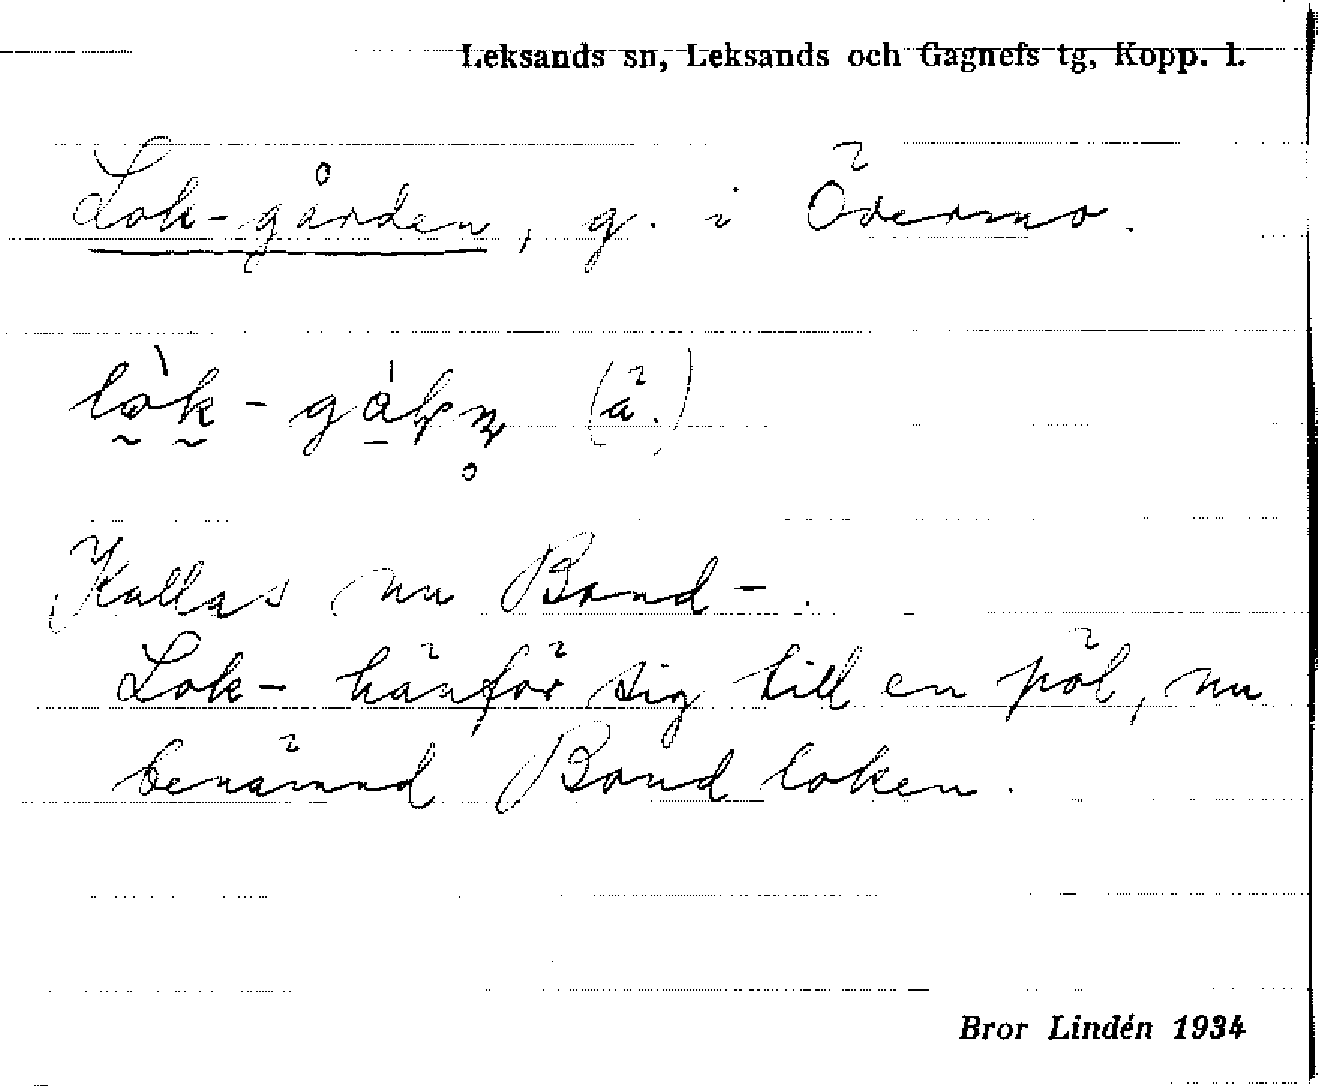 Leksands sn, Leksands och Gagnefs tg, Kopp. l.
Lok-gården, g. i Övermo.
(ä.)
Kallas nu Bond-.
Lok- hänför sig till en pöl, nu
benämnd Bondloken.
Bror Lindén 1934